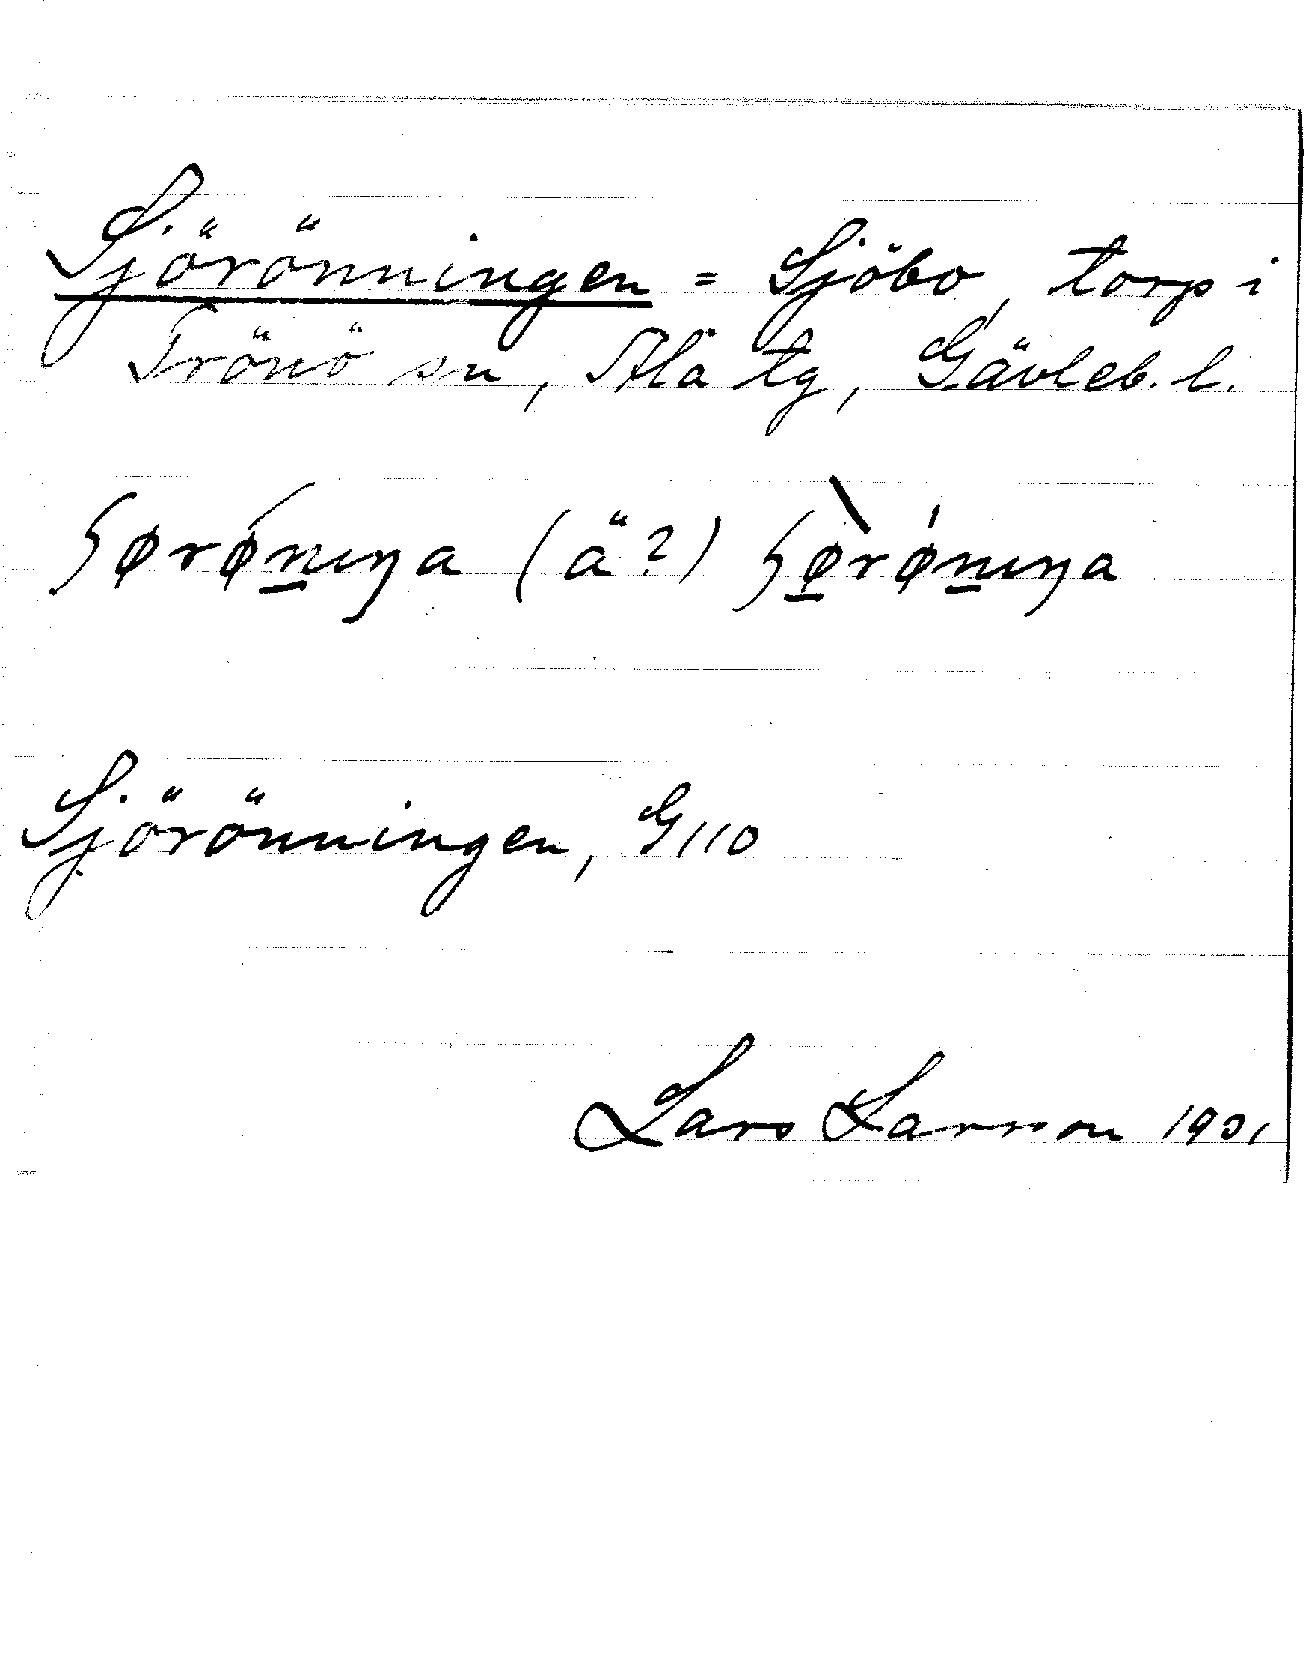 Sjörönningen = Sjöbo, torp i
Trönö sn, Ala tg, Gävleb. l.
ʃørǿnıŋa (ä?) ʃø̀rǿnıŋa
Sjörönningen, G110
Lars Larsson 1931